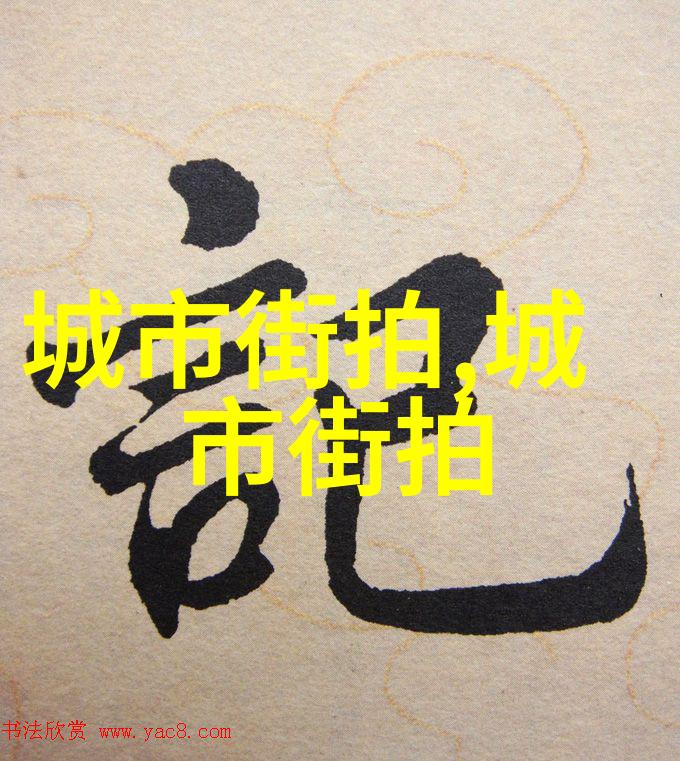 記
城市街拍,城
市街拍
书法欣赏 www.yac8.com